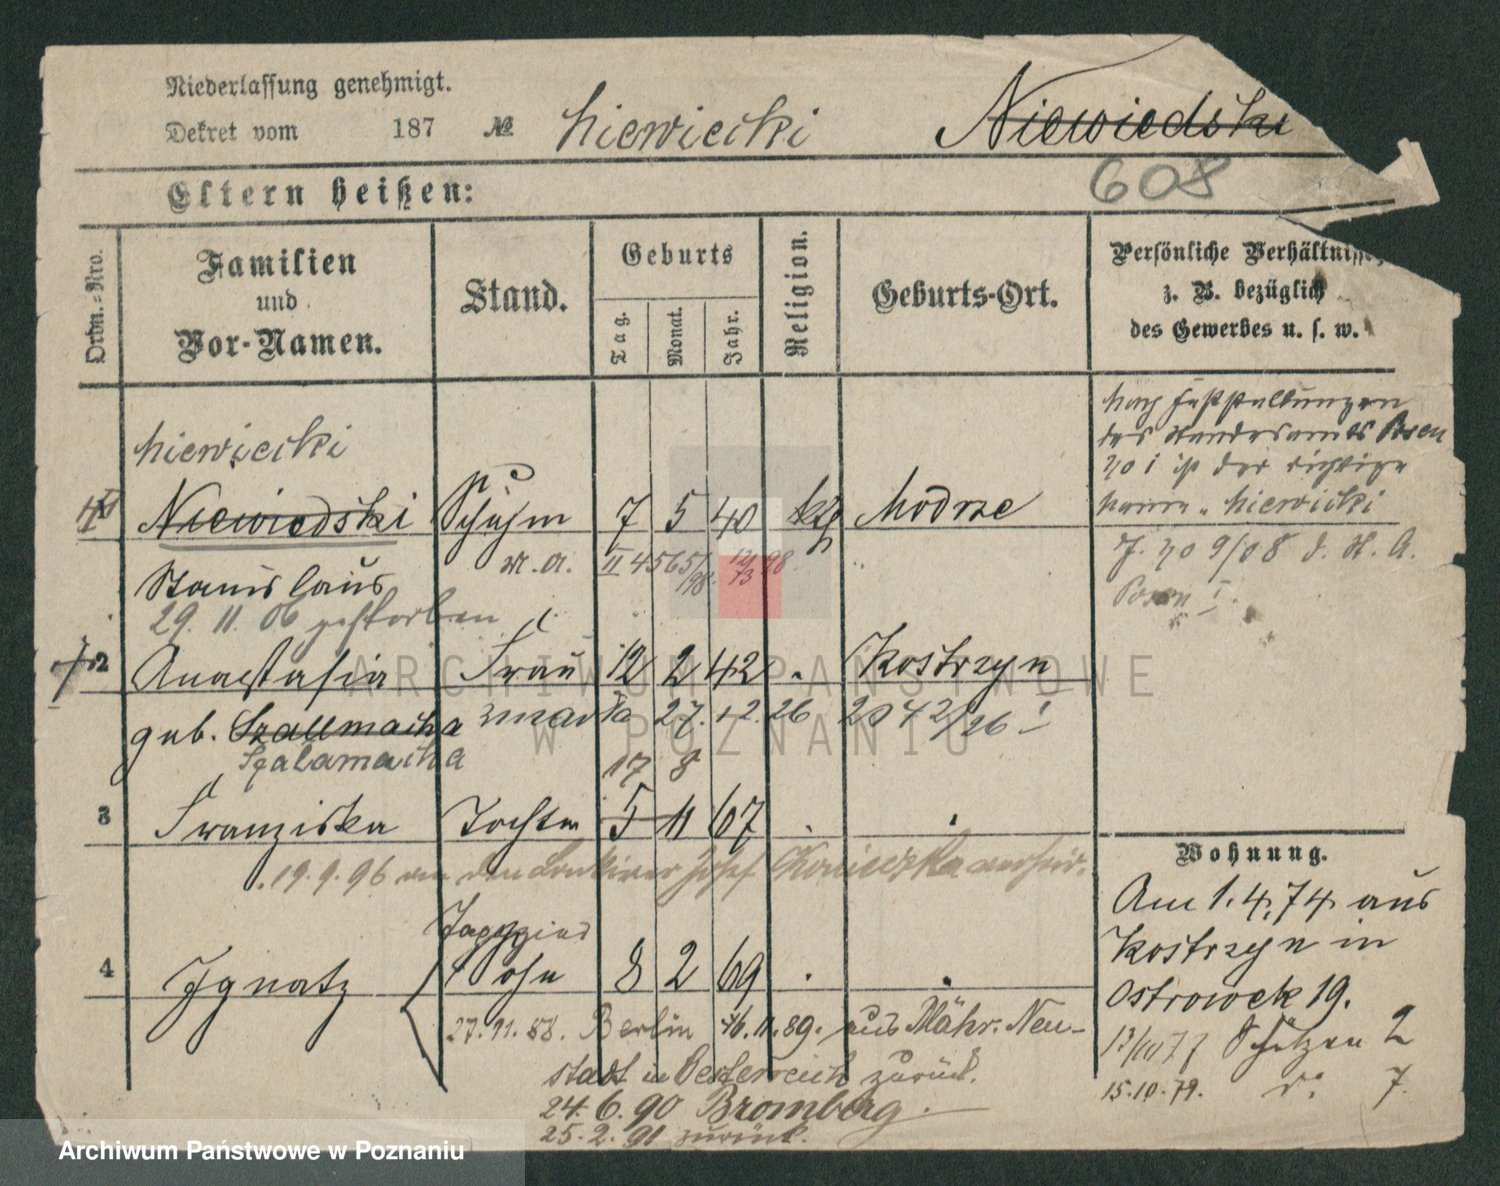 Niederlassung genehmigt.
Dekret vom 187 № Niewiecki Niewiedski
608
Eltern heißen:
Ordn.-Nro.
Familien
und
Vor-Namen.
Stand.
Geburts
Tag.
Monat.
Jahr.
Religion.
Geburts-Ort.
Persönliche Verhältnisse
z. B. bezüglich
des Gewerbes u. s. w.
Niewiecki
Niewiedski Schuhm 7 5 40 kth Modrze
Stanislaus
29. 11. 06 gestorben
Nach Feststellungen
des Standesamts Posen
No I ist der richtige
Name „Niewiecki
J. No 9/08 d. St. A.
Posen I.
2 Anastasia Frau 12 2 42 Kostrzyn
geb. Szallmacha
Szalamacha
17 8
3 Franziska Tochter 5 11 67
19. 9. 96 an den Josef verheir.
4 Ignatz Sohn 8 2 69
27. 11. 88. Berlin 16. 11. 89. aus Mähr. Neu-
stadt in Oesterreich zurück.
24. 6. 90 Bromberg.
25. 2. 91 zurück.
Wohnung.
Am 1. 4. 74 aus
Kostrzyn in
Ostrowek 19.
13/10 77 Schützen 2
15. 10. 79. do 7.
ARCHIWUM PAŃSTWOWE
W POZNANIU
Archiwum Państwowe w Poznaniu